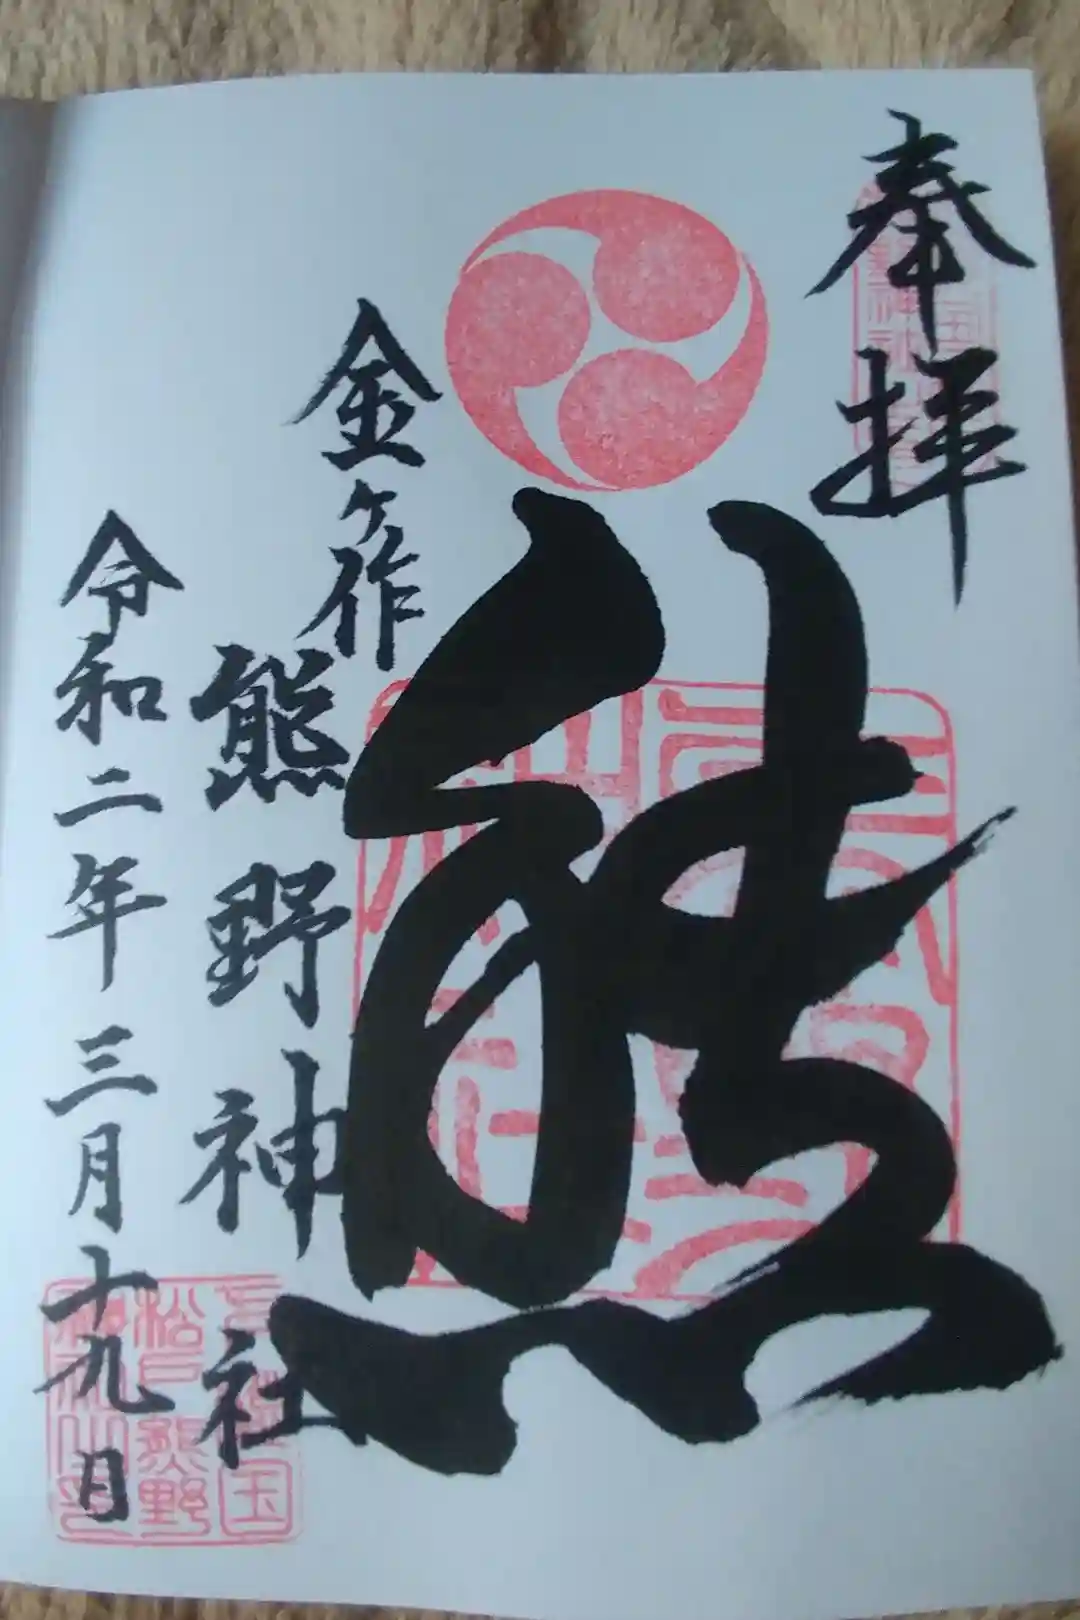 奉拝
熊
金ヶ作
熊野神社
令和二年三月十九日